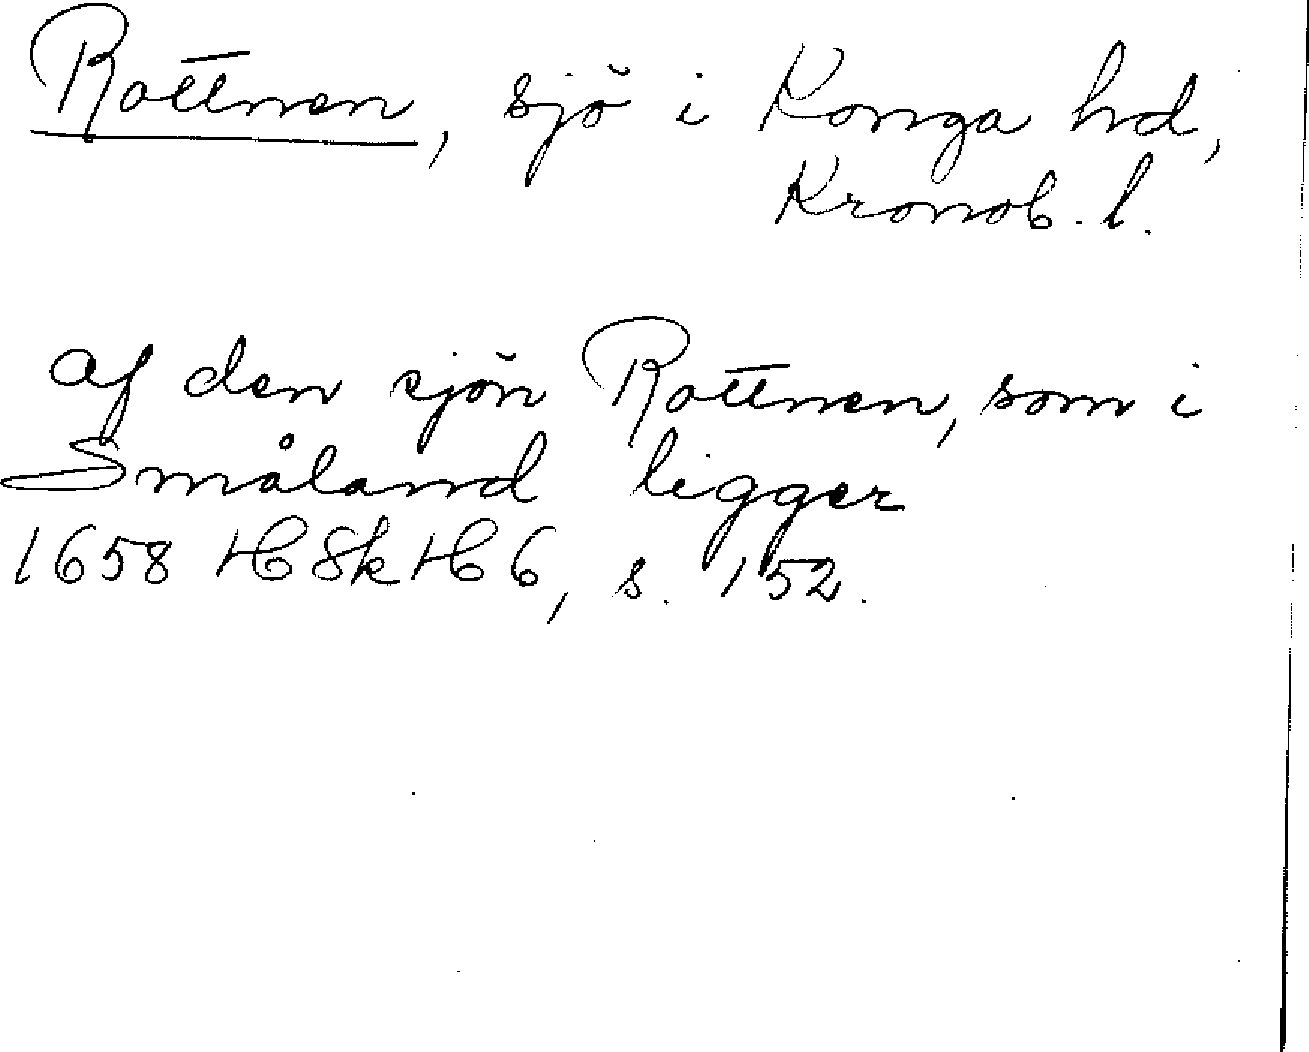 Rottnen, sjö i Konga hd,
Kronob. l.
af den sjön Rottnen, som i
Småland ligger
1658 HSkH 6, s. 152.